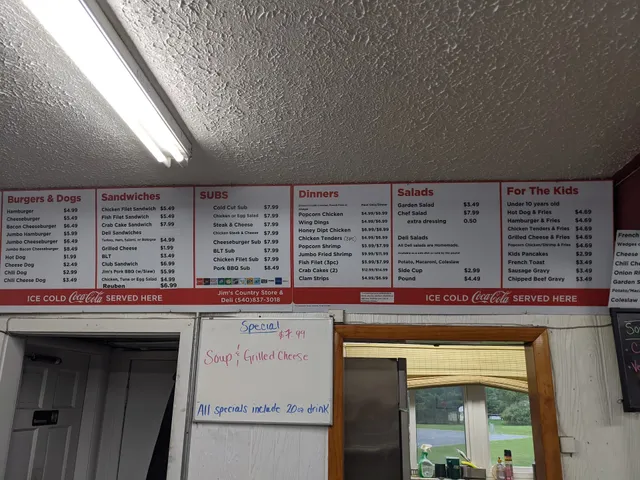 Burgers & Dogs
Hamburger $4.99
Cheeseburger $5.49
Bacon Cheeseburger $6.49
Jumbo Hamburger $5.99
Jumbo Cheeseburger $6.49
Jumbo Bacon Cheeseburger
Hot Dog $1.99
Cheese Dog $2.49
Chili Dog $2.99
Chili Cheese Dog $3.49
Sandwiches
Chicken Filet Sandwich $5.49
Fish Filet Sandwich $5.49
Crab Cake Sandwich $7.99
Deli Sandwiches
Turkey, Ham, Salami, or Bologna $4.99
Grilled Cheese
BLT $3.49
Club Sandwich $6.99
Jim's Pork BBQ (w/Slaw) $5.99
Chicken, Tuna or Egg Salad $4.99
Reuben $6.99
SUBS
Cold Cut Sub $7.99
Chicken or Egg Salad $7.99
Steak & Cheese $7.99
Chicken Steak & Cheese $7.99
Cheeseburger Sub $7.99
BLT Sub $7.99
Chicken Filet Sub $7.99
Pork BBQ Sub $8.49
Jim's Country Store &
Deli (540)837-3018
Dinners
Popcorn Chicken
Wing Dings
Honey Dipt Chicken
Chicken Tenders
Popcorn Shrimp
Jumbo Fried Shrimp
Fish Filet (3pc)
Crab Cakes (2)
Clam Strips
Salads
Garden Salad $5.49
Chef Salad $7.99
extra dressing 0.50
Deli Salads
All Deli salads are Homemade
Potato, Macaroni, Coleslaw
Side Cup $2.99
Pound $4.49
For The Kids
Under 10 years old
Hot Dog & Fries $4.69
Hamburger & Fries $4.69
Chicken Tenders & Fries $4.69
Grilled Cheese & Fries $4.69
Popcorn Chicken/Shrimp & Fries $4.69
Kids Pancakes $2.99
French Toast $3.49
Sausage Gravy $3.49
Chipped Beef Gravy $3.49
ICE COLD Coca-Cola SERVED HERE
ICE COLD Coca-Cola SERVED HERE
French
Coleslaw
Special
$7.99
Soup & Grilled Cheese
All specials include 20oz drink